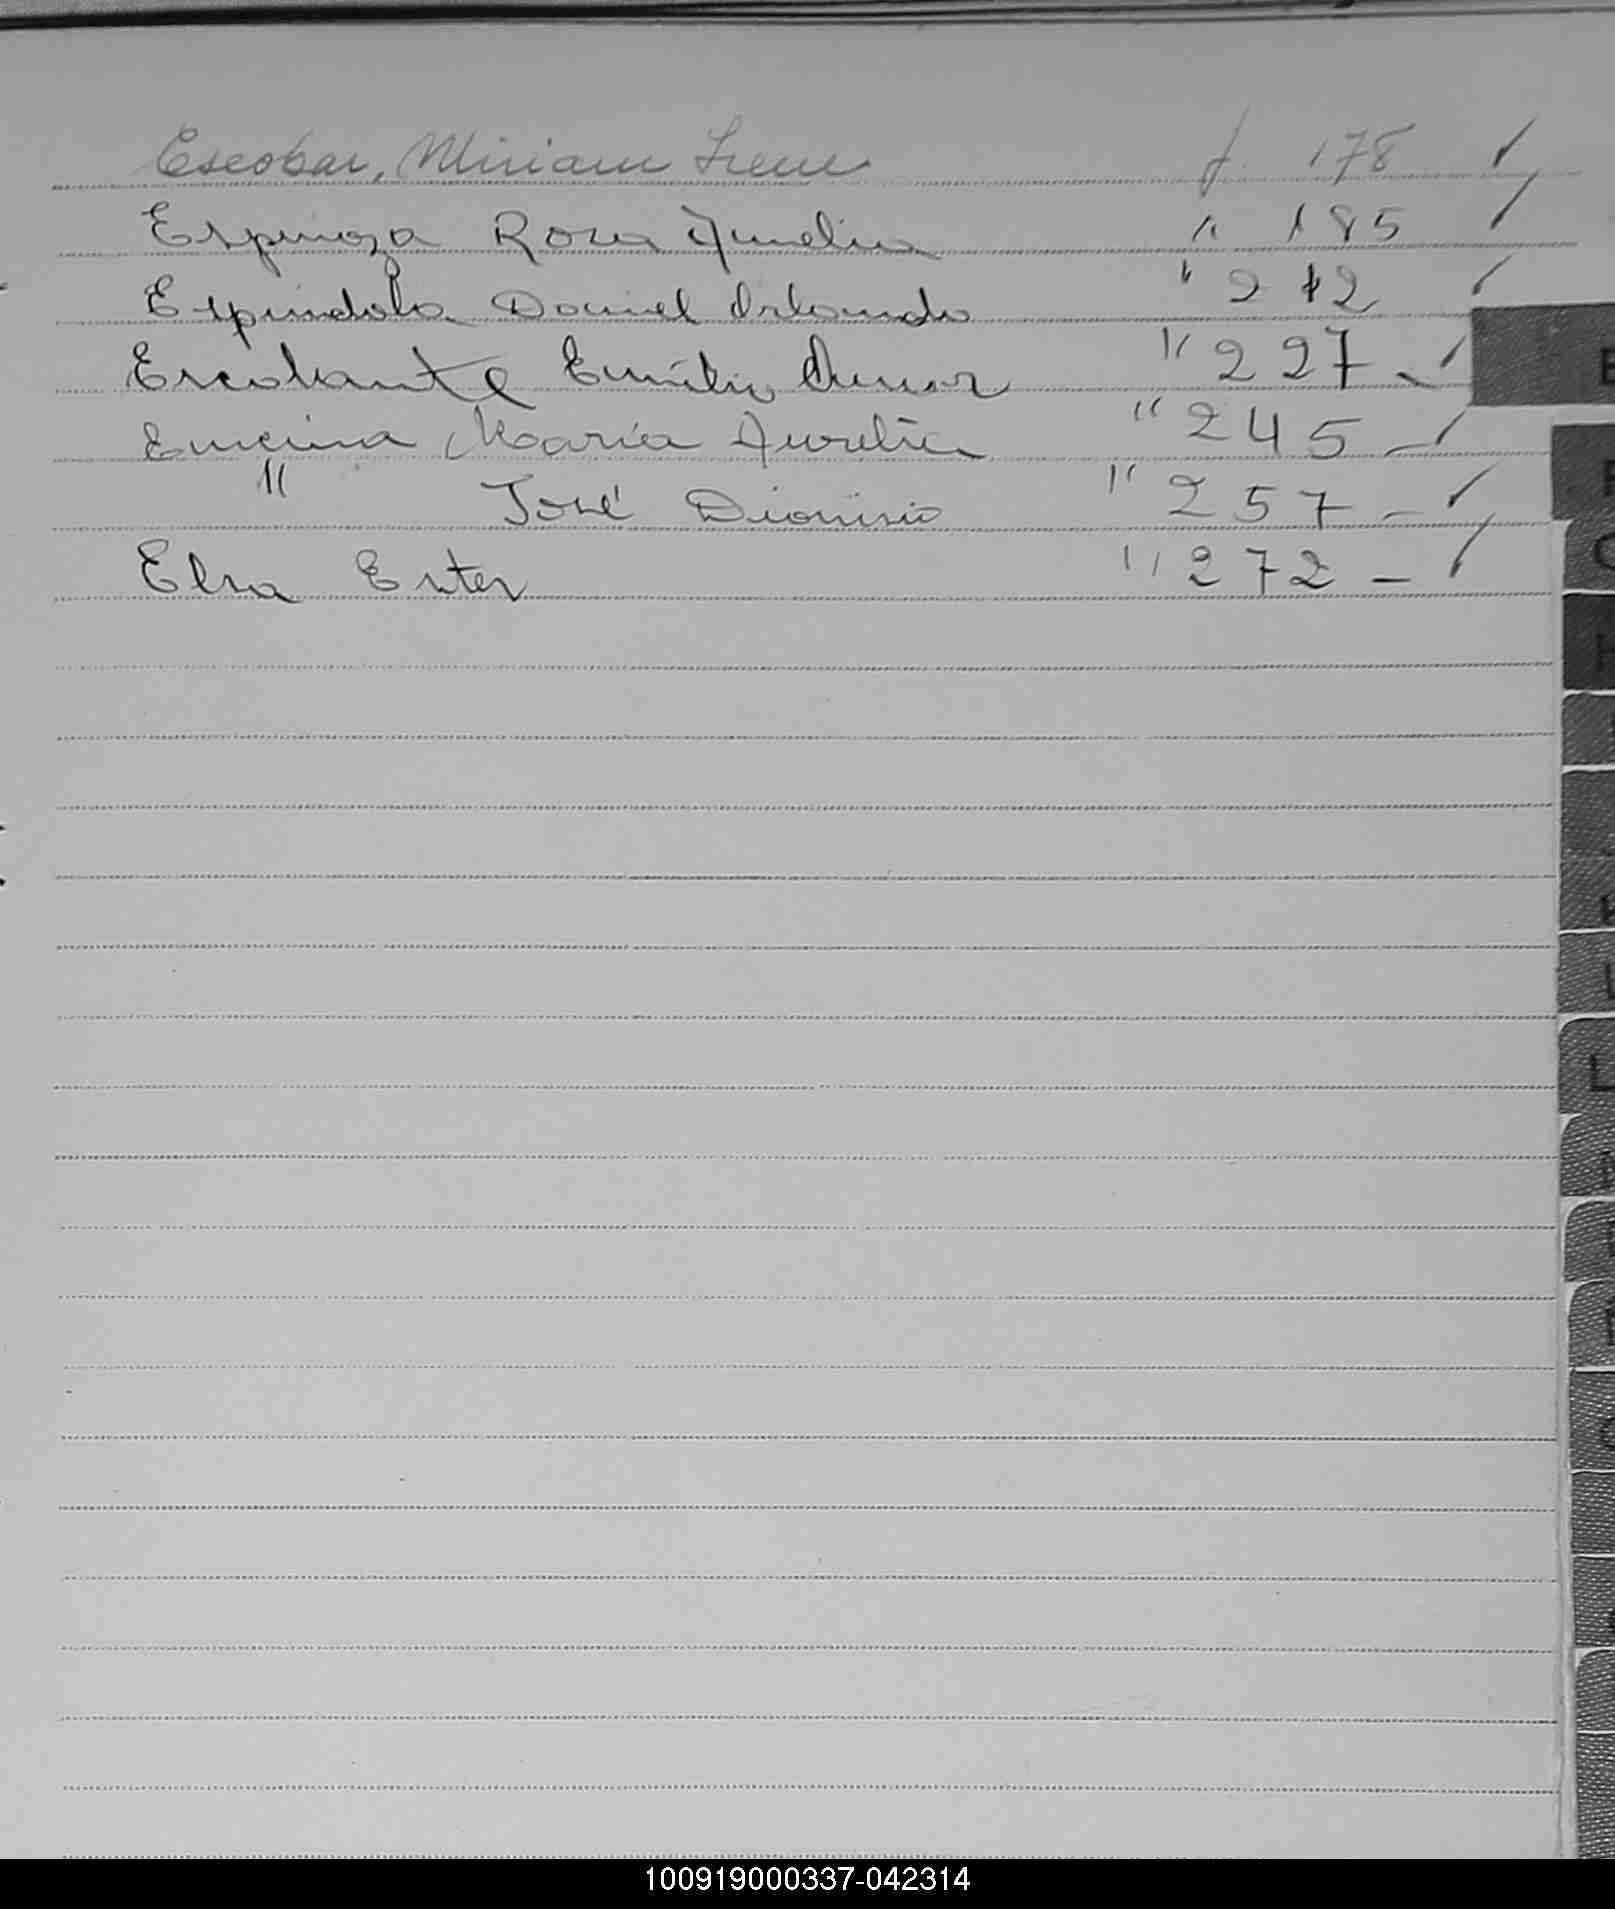 Escobar, Miriam Irene f. 178 ✓
Espinoza Rosa Amelia " 185 ✓
Espíndola Daniel Orlando " 212 ✓
Escalante Emilio " 227 - ✓
Encina María Aurelia " 245 - ✓
" José Dionisio " 257 - ✓
Elsa Ester " 272 - ✓
E
F
G
H
L
100919000337-042314